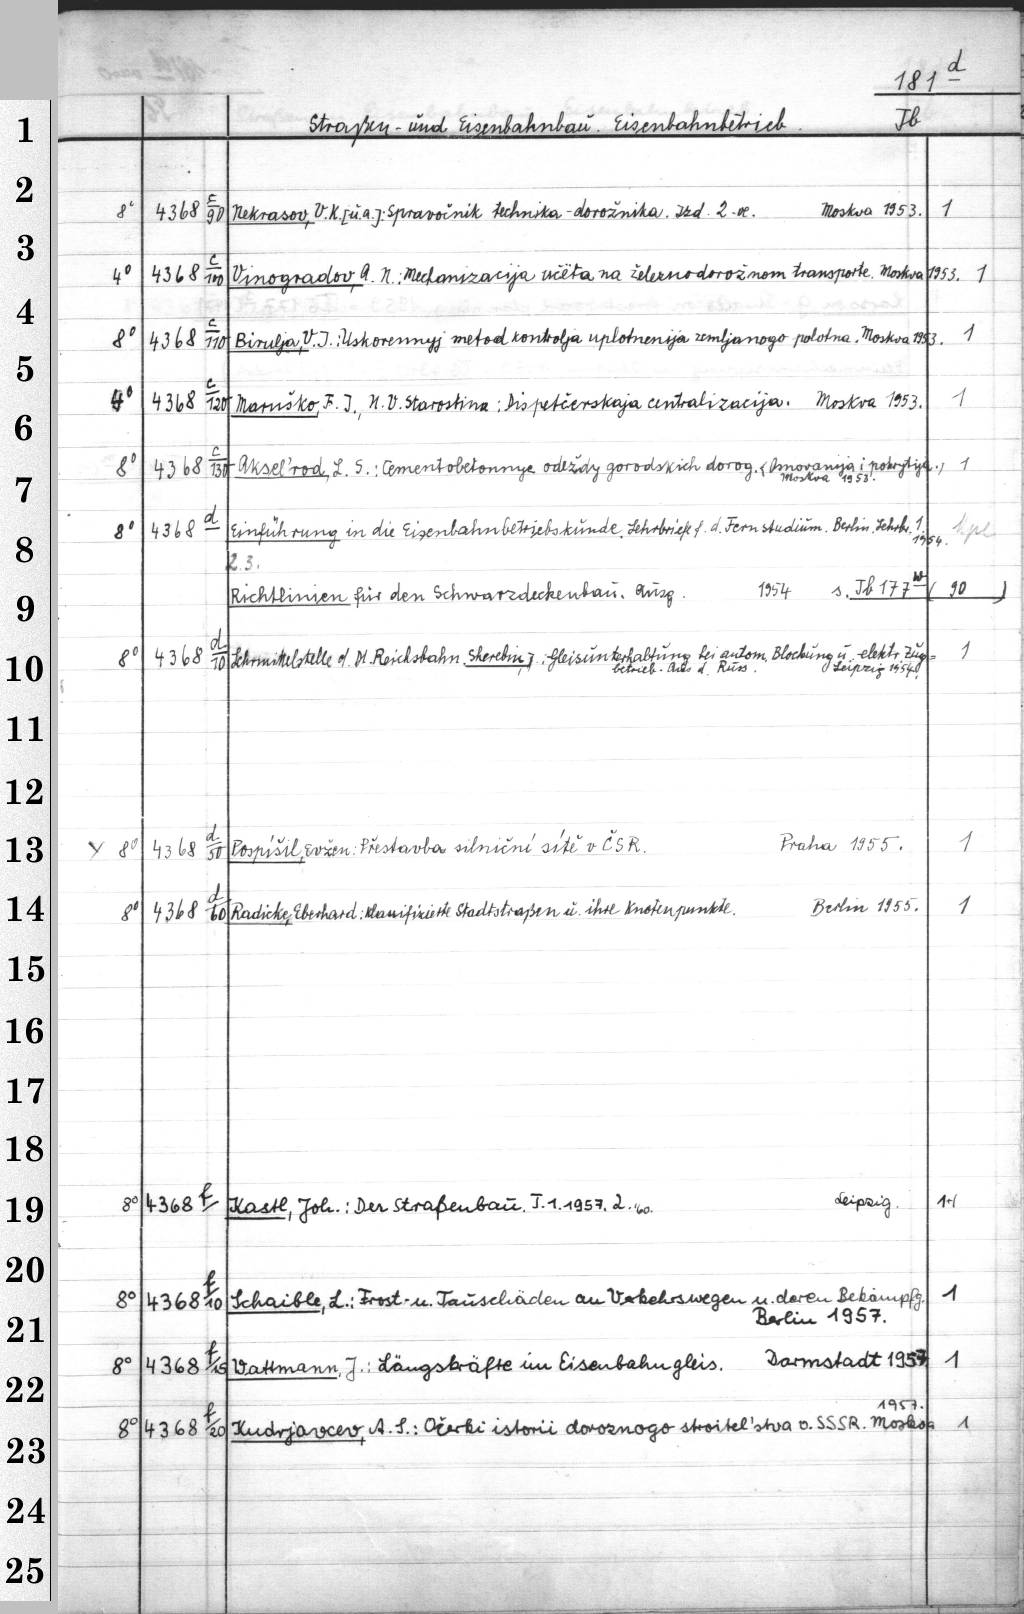 181 d
Straßen- und Eisenbahnbau. Eisenbahnbetrieb. Jb
1
2
8° 4368 c/90 Nekrasov, V.K. [u.a.]: Spravočnik technika-dorožnika. Izd. 2-oe. Moskva 1953. 1
3
4° 4368 c/100 Vinogradov, A. N.: Mechanizacija učëta na železnodorožnom transporte. Moskva 1953. 1
4
8° 4368 c/110 Birulja, V. I.: Uskorennyj metod kontrolja uplotnenija zemljanogo polotna. Moskva 1953. 1
5
4° 4368 c/120 Maruško, F. I., N. V. Starostina: Dispetčerskaja centralizacija. Moskva 1953. 1
6
8° 4368 c/130 Aksel'rod, L. S.: Cementobetonnye odeždy gorodskich dorog. (Osnovanija i pokrytija.) 1
Moskva 1953.
7
8° 4368 d Einführung in die Eisenbahnbetriebskunde. Lehrbriefe f. d. Fernstudium. Berlin. Lehrbr. 1.
1954.
8
2. 3.
9
Richtlinien für den Schwarzdeckenbau. Ausg. 1954 s. Jb 177 w ( 90 )
10
8° 4368 d/10 Lehrmittelstelle d. Dt. Reichsbahn. Skerebin, J.: Gleisunterhaltung bei autom. Blockung u. elektr. Zug= 1
betrieb. Aus d. Russ. Leipzig 1954.
11
12
13
8° 4368 d/50 Pospíšil, Evžen: Přestavba silniční sítě v ČSR. Praha 1955. 1
14
8° 4368 d/60 Radicke, Eberhard: Klassifizierte Stadtstraßen u. ihre Knotenpunkte. Berlin 1955. 1
15
16
17
18
19
8° 4368 f Kastl, Joh.: Der Straßenbau. T. 1. 1957. 2. '60. Leipzig. 1+1
20
8° 4368 f/10 Schaible, L.: Frost- u. Tauschäden an Verkehrswegen u. deren Bekämpfg. 1
21
Berlin 1957.
8° 4368 f/15 Wattmann, J.: Längskräfte im Eisenbahngleis. Darmstadt 1957 1
22
1957.
8° 4368 f/20 Kudrjavcev, A. S.: Očerki istorii dorožnogo stroitel'stva v. SSSR. Moskva 1
23
24
25